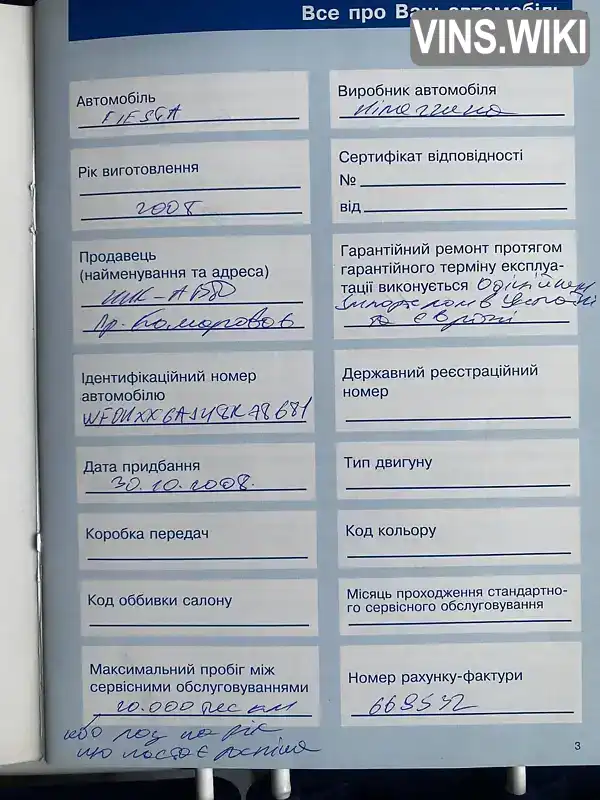 Все про Ваш автомобіль
VINS.WIKI
Автомобіль
FIESTA
Виробник автомобіля
Німеччина
Рік виготовлення
2008
Сертифікат відповідності
№
від
Продавець
(найменування та адреса)
НИК-АВТО
Гарантійний ремонт протягом
гарантійного терміну експлуа-
тації виконується
та Європі
Ідентифікаційний номер
автомобілю
Державний реєстраційний
номер
Дата придбання
30.10.2008.
Тип двигуну
Коробка передач
Код кольору
Код оббивки салону
Місяць проходження стандартно-
го сервісного обслуговування
Максимальний пробіг між
сервісними обслуговуваннями
км
Номер рахунку-фактури
669532
або на рік
що настає
3